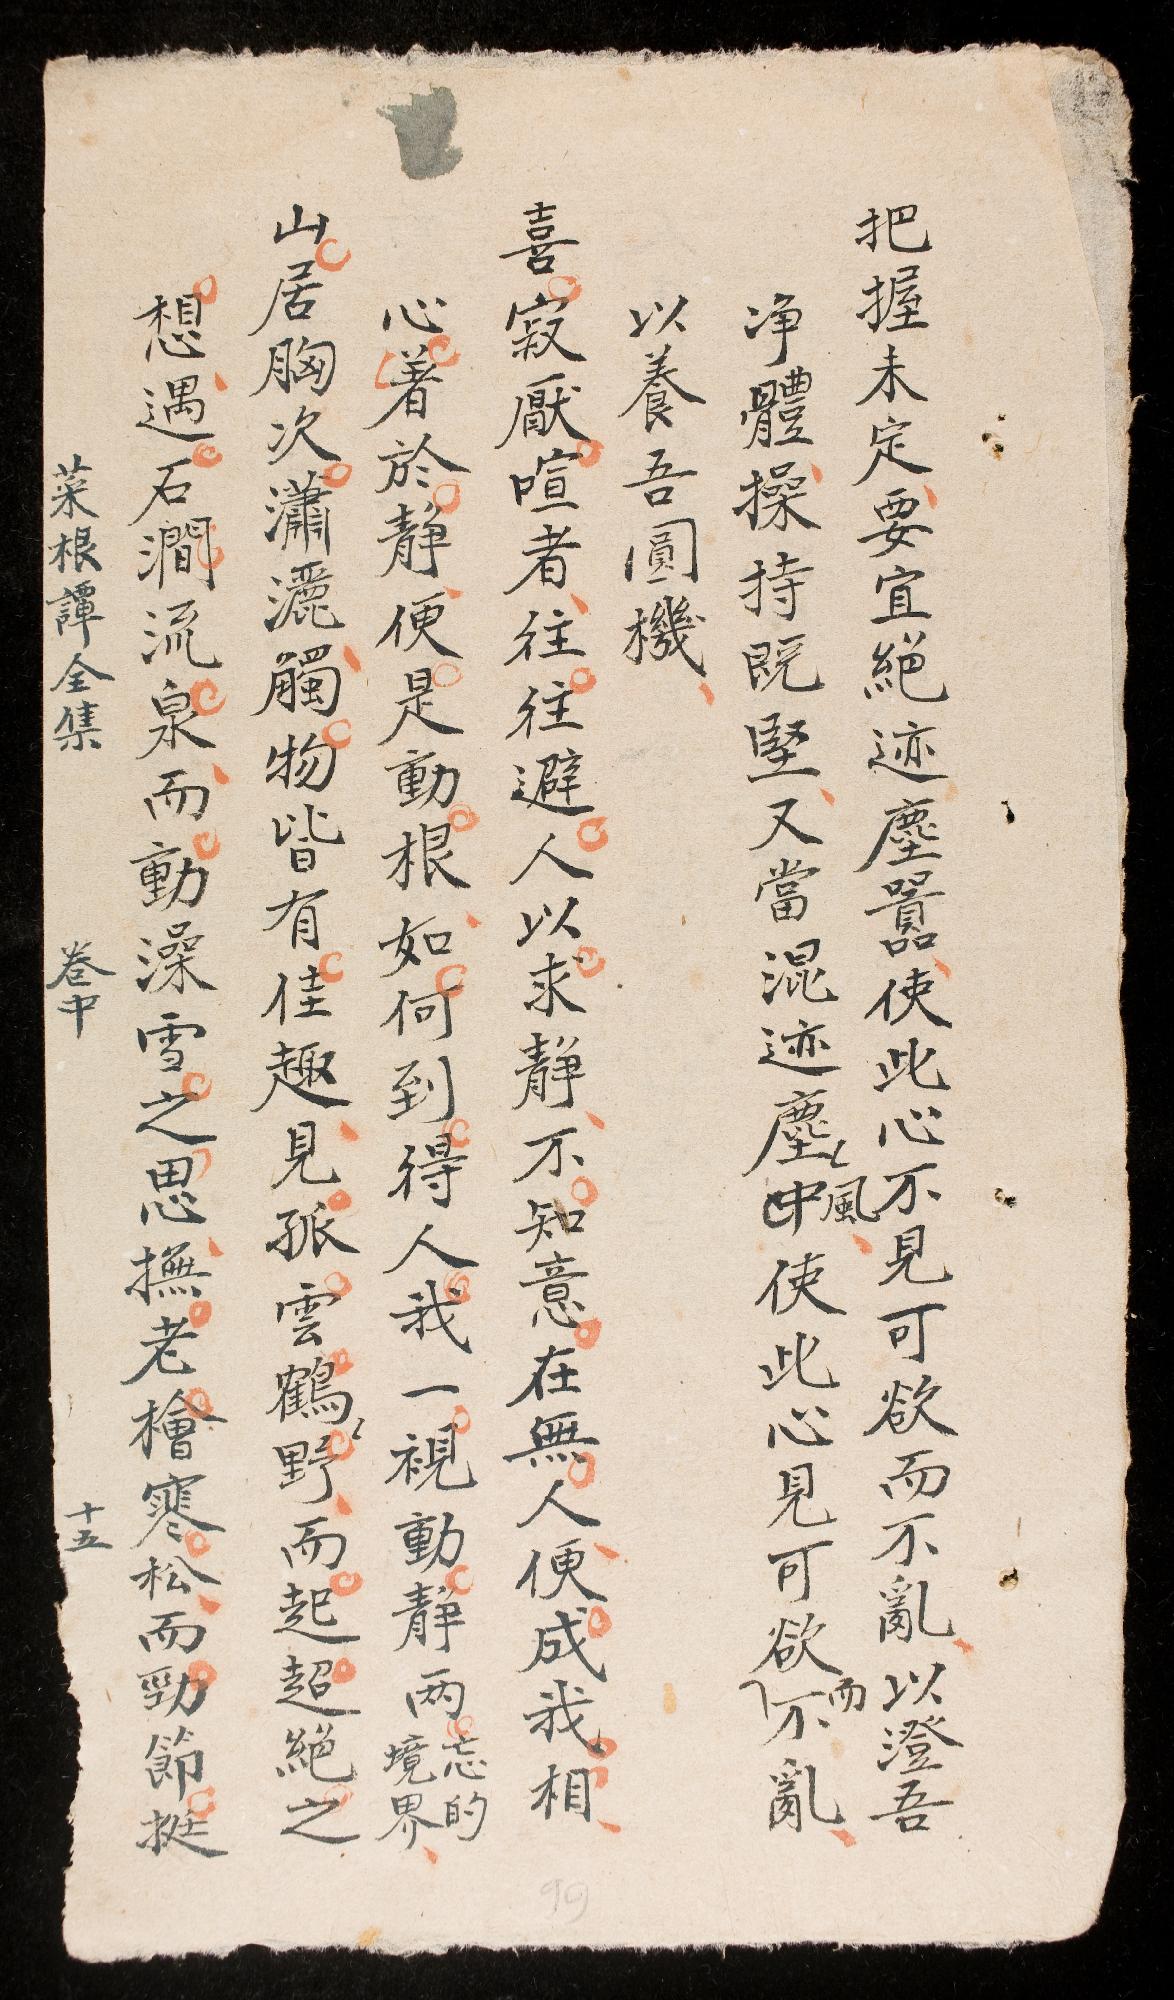 把握未定要宜絕迹塵囂使此心不見可欲而不亂以澄吾
净體操持既堅又當混迹塵中風使此心見可欲而不亂
以養吾圓機
喜寂厭喧者往往避人以求靜不知意在無人便成我相
心着於靜便是動根如何到得人我一視動靜両忘的境界
山居胸次瀟灑觸物皆有佳趣見孤雲鶴野而起超絕之
想遇石澗流泉而動澡雪之思撫老檜寒松而勁節挺
菜根譚全集 卷中 十五
99